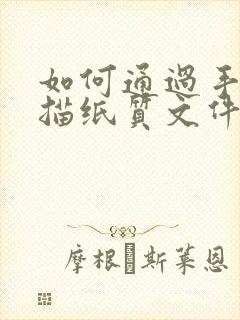 如何通過手
描纸質文件
摩根·斯莱恩